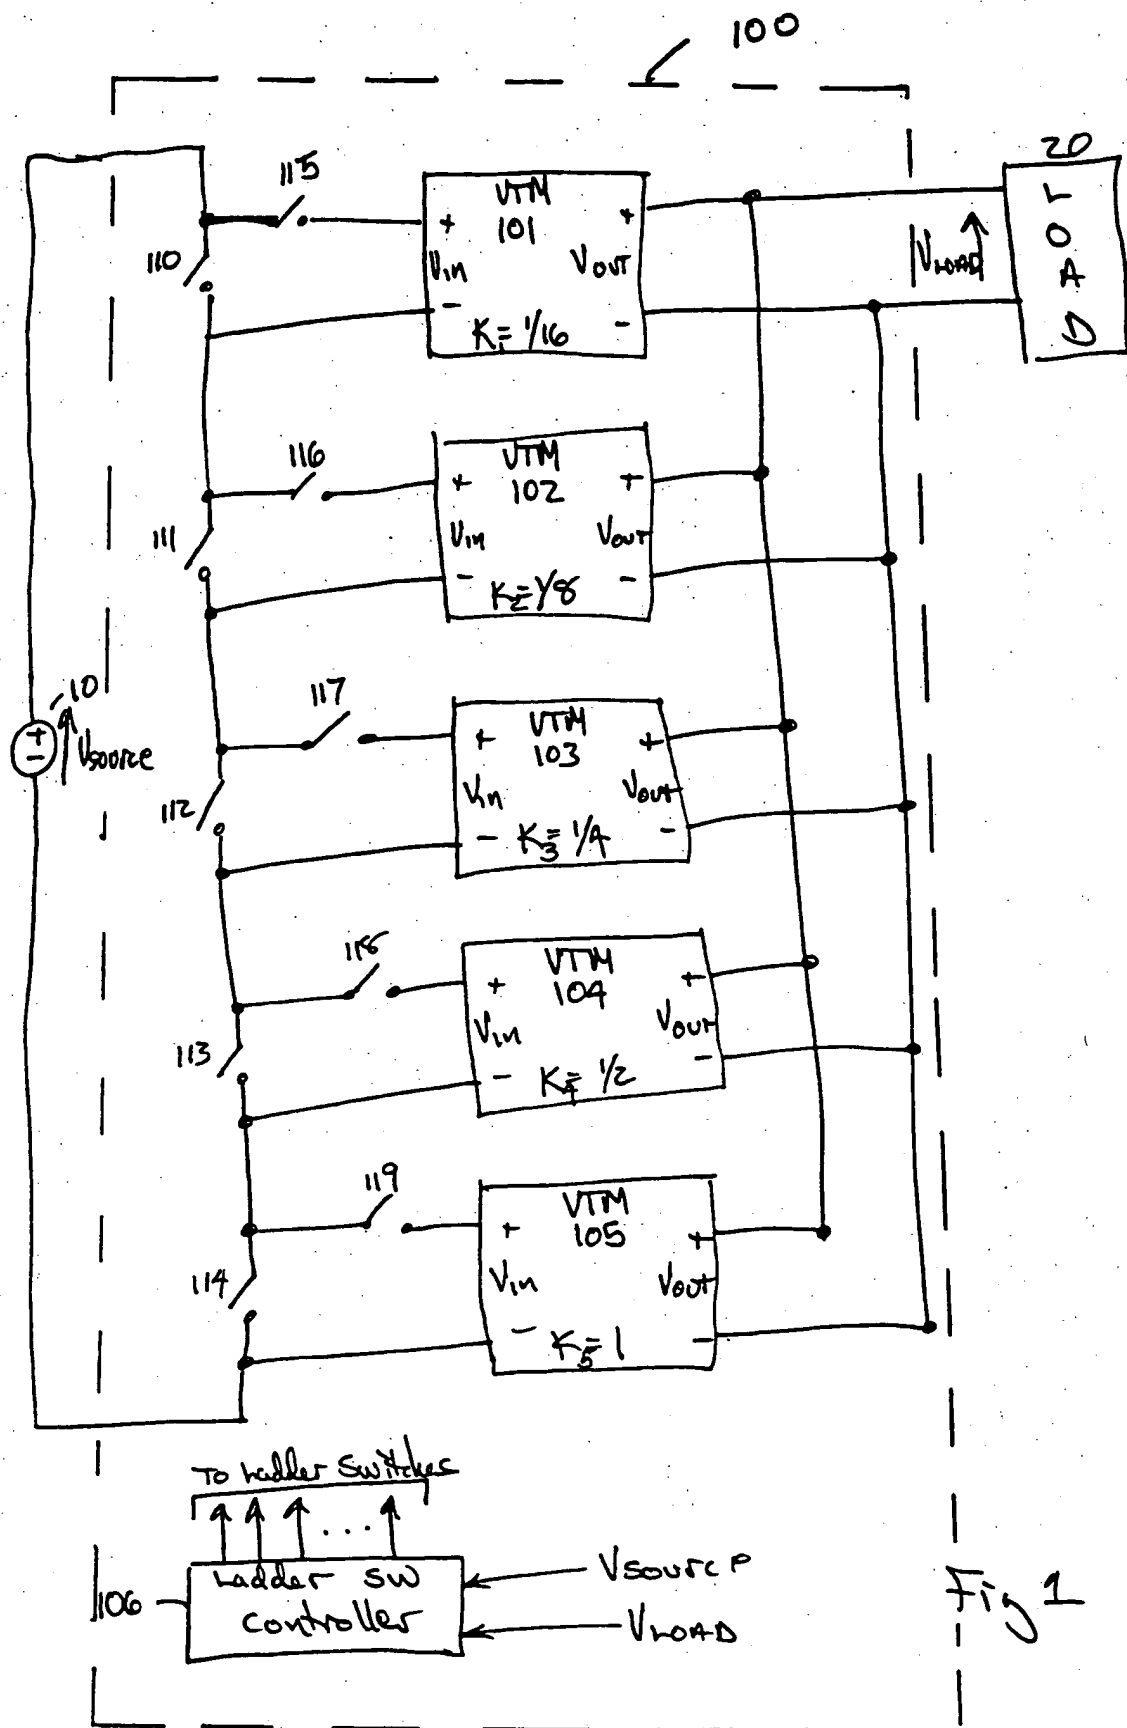 100
20
LOAD
VLOAD
115
110
VTM
101
+
+
Vin
VOUT
-
-
K1=1/16
116
111
VTM
102
+
+
Vin
VOUT
-
-
K2=1/8
10
+
-
Vsource
117
112
VTM
103
+
+
Vin
VOUT
-
-
K3=1/4
118
113
VTM
104
+
+
Vin
VOUT
-
-
K4=1/2
119
114
VTM
105
+
+
Vin
VOUT
-
-
K5=1
To Ladder Switches
...
106
Ladder SW
Controller
Vsource
VLOAD
Fig 1